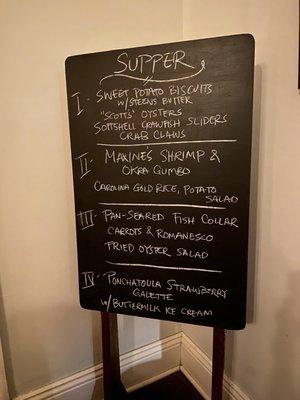 SUPPER
I - SWEET POTATO BISCUITS
W/STEENS BUTTER
"SCOTTS" OYSTERS
SOFTSHELL CRAWFISH SLIDERS
CRAB CLAWS
II - MAXINES SHRIMP &
OKRA GUMBO
CAROLINA GOLD RICE, POTATO
SALAD
III - PAN-SEARED FISH COLLAR
CARROTS & ROMANESCO
FRIED OYSTER SALAD
IV - PONCHATOULA STRAWBERRY
GALETTE
W/BUTTERMILK ICE CREAM